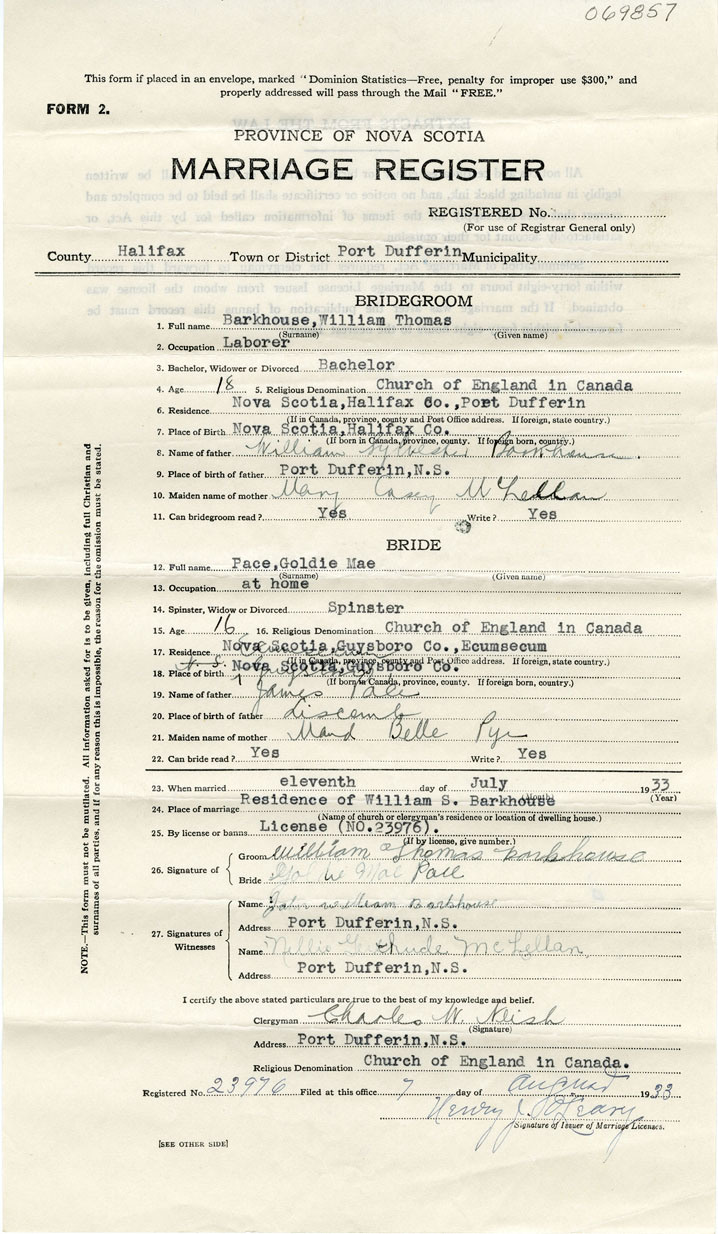 069857
This form if placed in an envelope, marked "Dominion Statistics—Free, penalty for improper use $300," and
properly addressed will pass through the Mail "FREE."
FORM 2.
PROVINCE OF NOVA SCOTIA
MARRIAGE REGISTER
REGISTERED No.
(For use of Registrar General only)
County Halifax Town or District Port Dufferin Municipality
BRIDEGROOM
1. Full name Barkhouse,William Thomas
(Surname) (Given name)
2. Occupation Laborer
3. Bachelor, Widower or Divorced Bachelor
4. Age 18 5. Religious Denomination Church of England in Canada
6. Residence Nova Scotia,Halifax Co.,Port Dufferin
(If in Canada, province, county and Post Office address. If foreign, state country.)
7. Place of Birth Nova Scotia,Halifax Co.
(If born in Canada, province, county. If foreign born, country.)
8. Name of father William Sylvester Barkhouse.
9. Place of birth of father Port Dufferin,N.S.
10. Maiden name of mother Mary Casey McLellan
11. Can bridegroom read? Yes Write? Yes
BRIDE
12. Full name Pace,Goldie Mae
(Surname) (Given name)
13. Occupation at home
14. Spinster, Widow or Divorced Spinster
15. Age 16 16. Religious Denomination Church of England in Canada
17. Residence Nova Scotia,Guysboro Co.,Ecumsecum
N.S. (If in Canada, province, county and Post Office address. If foreign, state country.)
18. Place of birth Nova Scotia,Guysboro Co.
(If born in Canada, province, county. If foreign born, country.)
19. Name of father James Pace
20. Place of birth of father Liscomb
21. Maiden name of mother Maud Belle Pye
22. Can bride read? Yes Write? Yes
23. When married eleventh day of July 1933
(Month) (Year)
24. Place of marriage Residence of William S. Barkhouse
(Name of church or clergyman's residence or location of dwelling house.)
25. By license or banns License (NO.23976).
(If by license, give number.)
26. Signature of
Groom William Thomas Barkhouse
Bride Goldie Mae Pace
27. Signatures of Witnesses
Name John William Barkhouse
Address Port Dufferin,N.S.
Name Nellie Gertrude McLellan
Address Port Dufferin,N.S.
I certify the above stated particulars are true to the best of my knowledge and belief.
Clergyman Charles W. Neish
(Signature)
Address Port Dufferin,N.S.
Religious Denomination Church of England in Canada.
Registered No. 23976 Filed at this office 7 day of August 1933
Henry J. O'Leary
Signature of Issuer of Marriage Licenses.
[SEE OTHER SIDE]
NOTE.—This form must not be mutilated. All information asked for is to be given, including full Christian and
surnames of all parties, and if for any reason this is impossible, the reason for the omission must be stated.